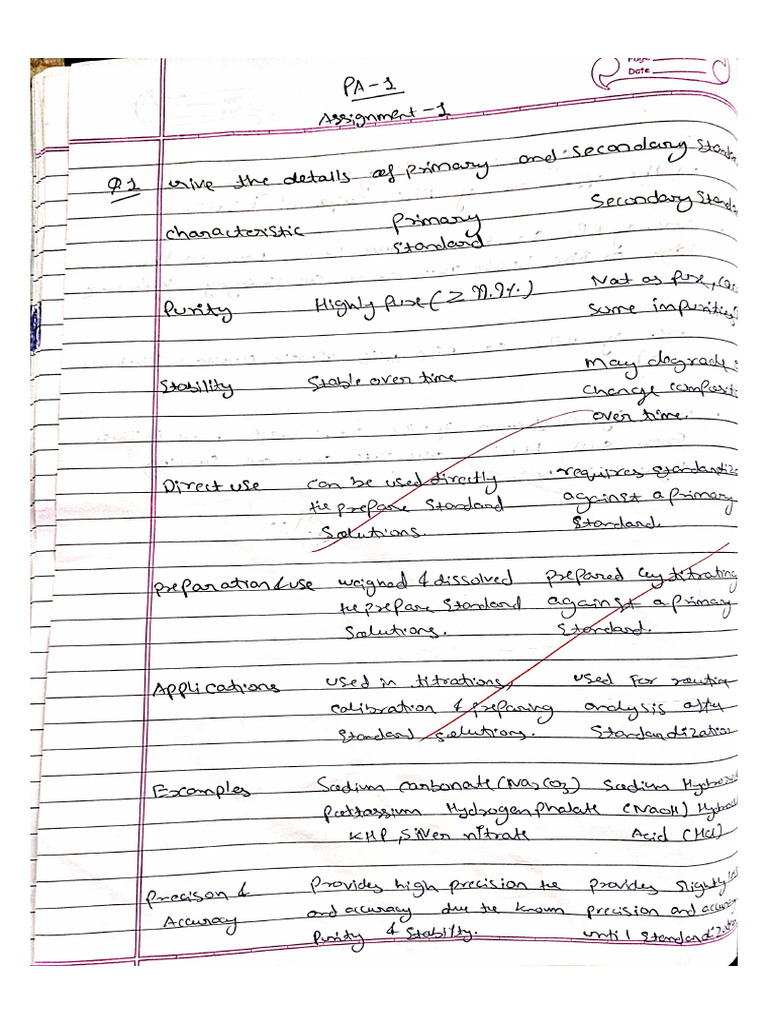 Page
Date
PA-1
Assignment-1
Q.1 Give the details of primary and secondary
characteristic Primary Secondary
Standard
Purity Highly pure (≥ 99.9%.) Not as pure,
some impurities
Stability Stable over time May degrade
change
over time.
Direct use can be used directly requires
to prepare standard against a primary
solutions. standard.
preparation & use weighed & dissolved prepared by titrating
to prepare standard against a primary
solutions. standard.
Applications used in titrations, used for routine
calibration & preparing analysis after
standard solutions. Standardization
Examples Sodium carbonate (Na2CO3) Sodium
Hydrogen phalate (NaOH)
KHP, Silver nitrate Acid (HCl)
Precison & Provides high precision to provides slightly
Accuracy and accuracy due to known precision and
purity & Stability. until